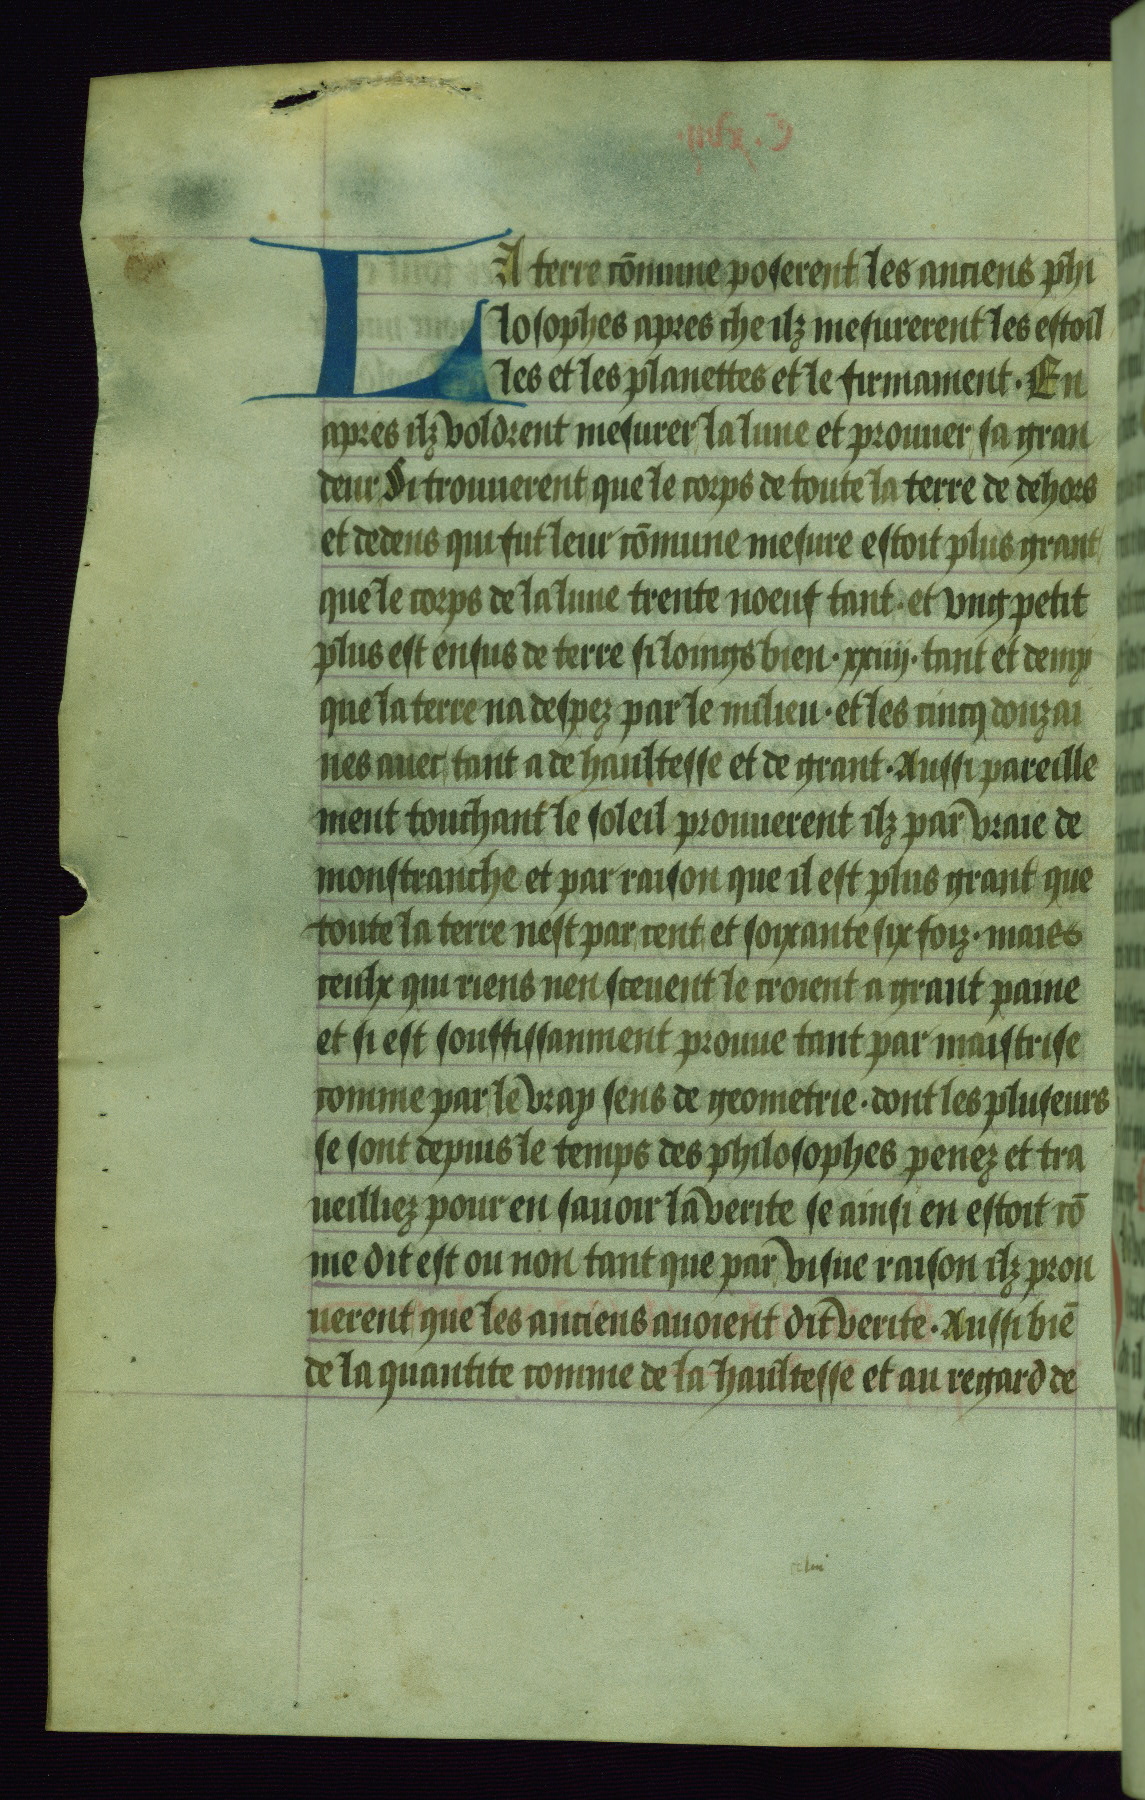 LA terre cōmune poserent les anciens phi
losophes apres che ilz mesurerent les estoil
les et les planettes et le firmament · En
apres ilz voldrent mesurer la lune et prouuer sa gran
deur Si trouuerent que le corps de toute la terre de dehors
et dedens qui fut leur cōmune mesure estoit plus grant
que le corps de la lune trente noeuf tant · et vng petit
plus est ensus de terre si loings bien · xxiiij · tant et demy
que la terre na despez par le milieu · et les cincq douzai
nes auec tant a de haultesse et de grant · Aussi pareille
ment touchant le soleil prouuerent ilz par vraie de
monstranche et par raison que il est plus grant que
toute la terre nest par cent et soixante six foiz · maies
ceulx qui riens nen sceuent le croient a grant paine
et si est souffissanment prouue tant par maistrise
comme par le vray sens de geometrie · dont les pluseurs
se sont depuis le temps des philosophes penez et tra
ueilliez pour en sauoir la verite se ainsi en estoit cō
me dit est ou non tant que par visue raison ilz prou
uerent que les anciens auoient dit verite · Aussi biē
de la quantite comme de la haultesse et au regard de